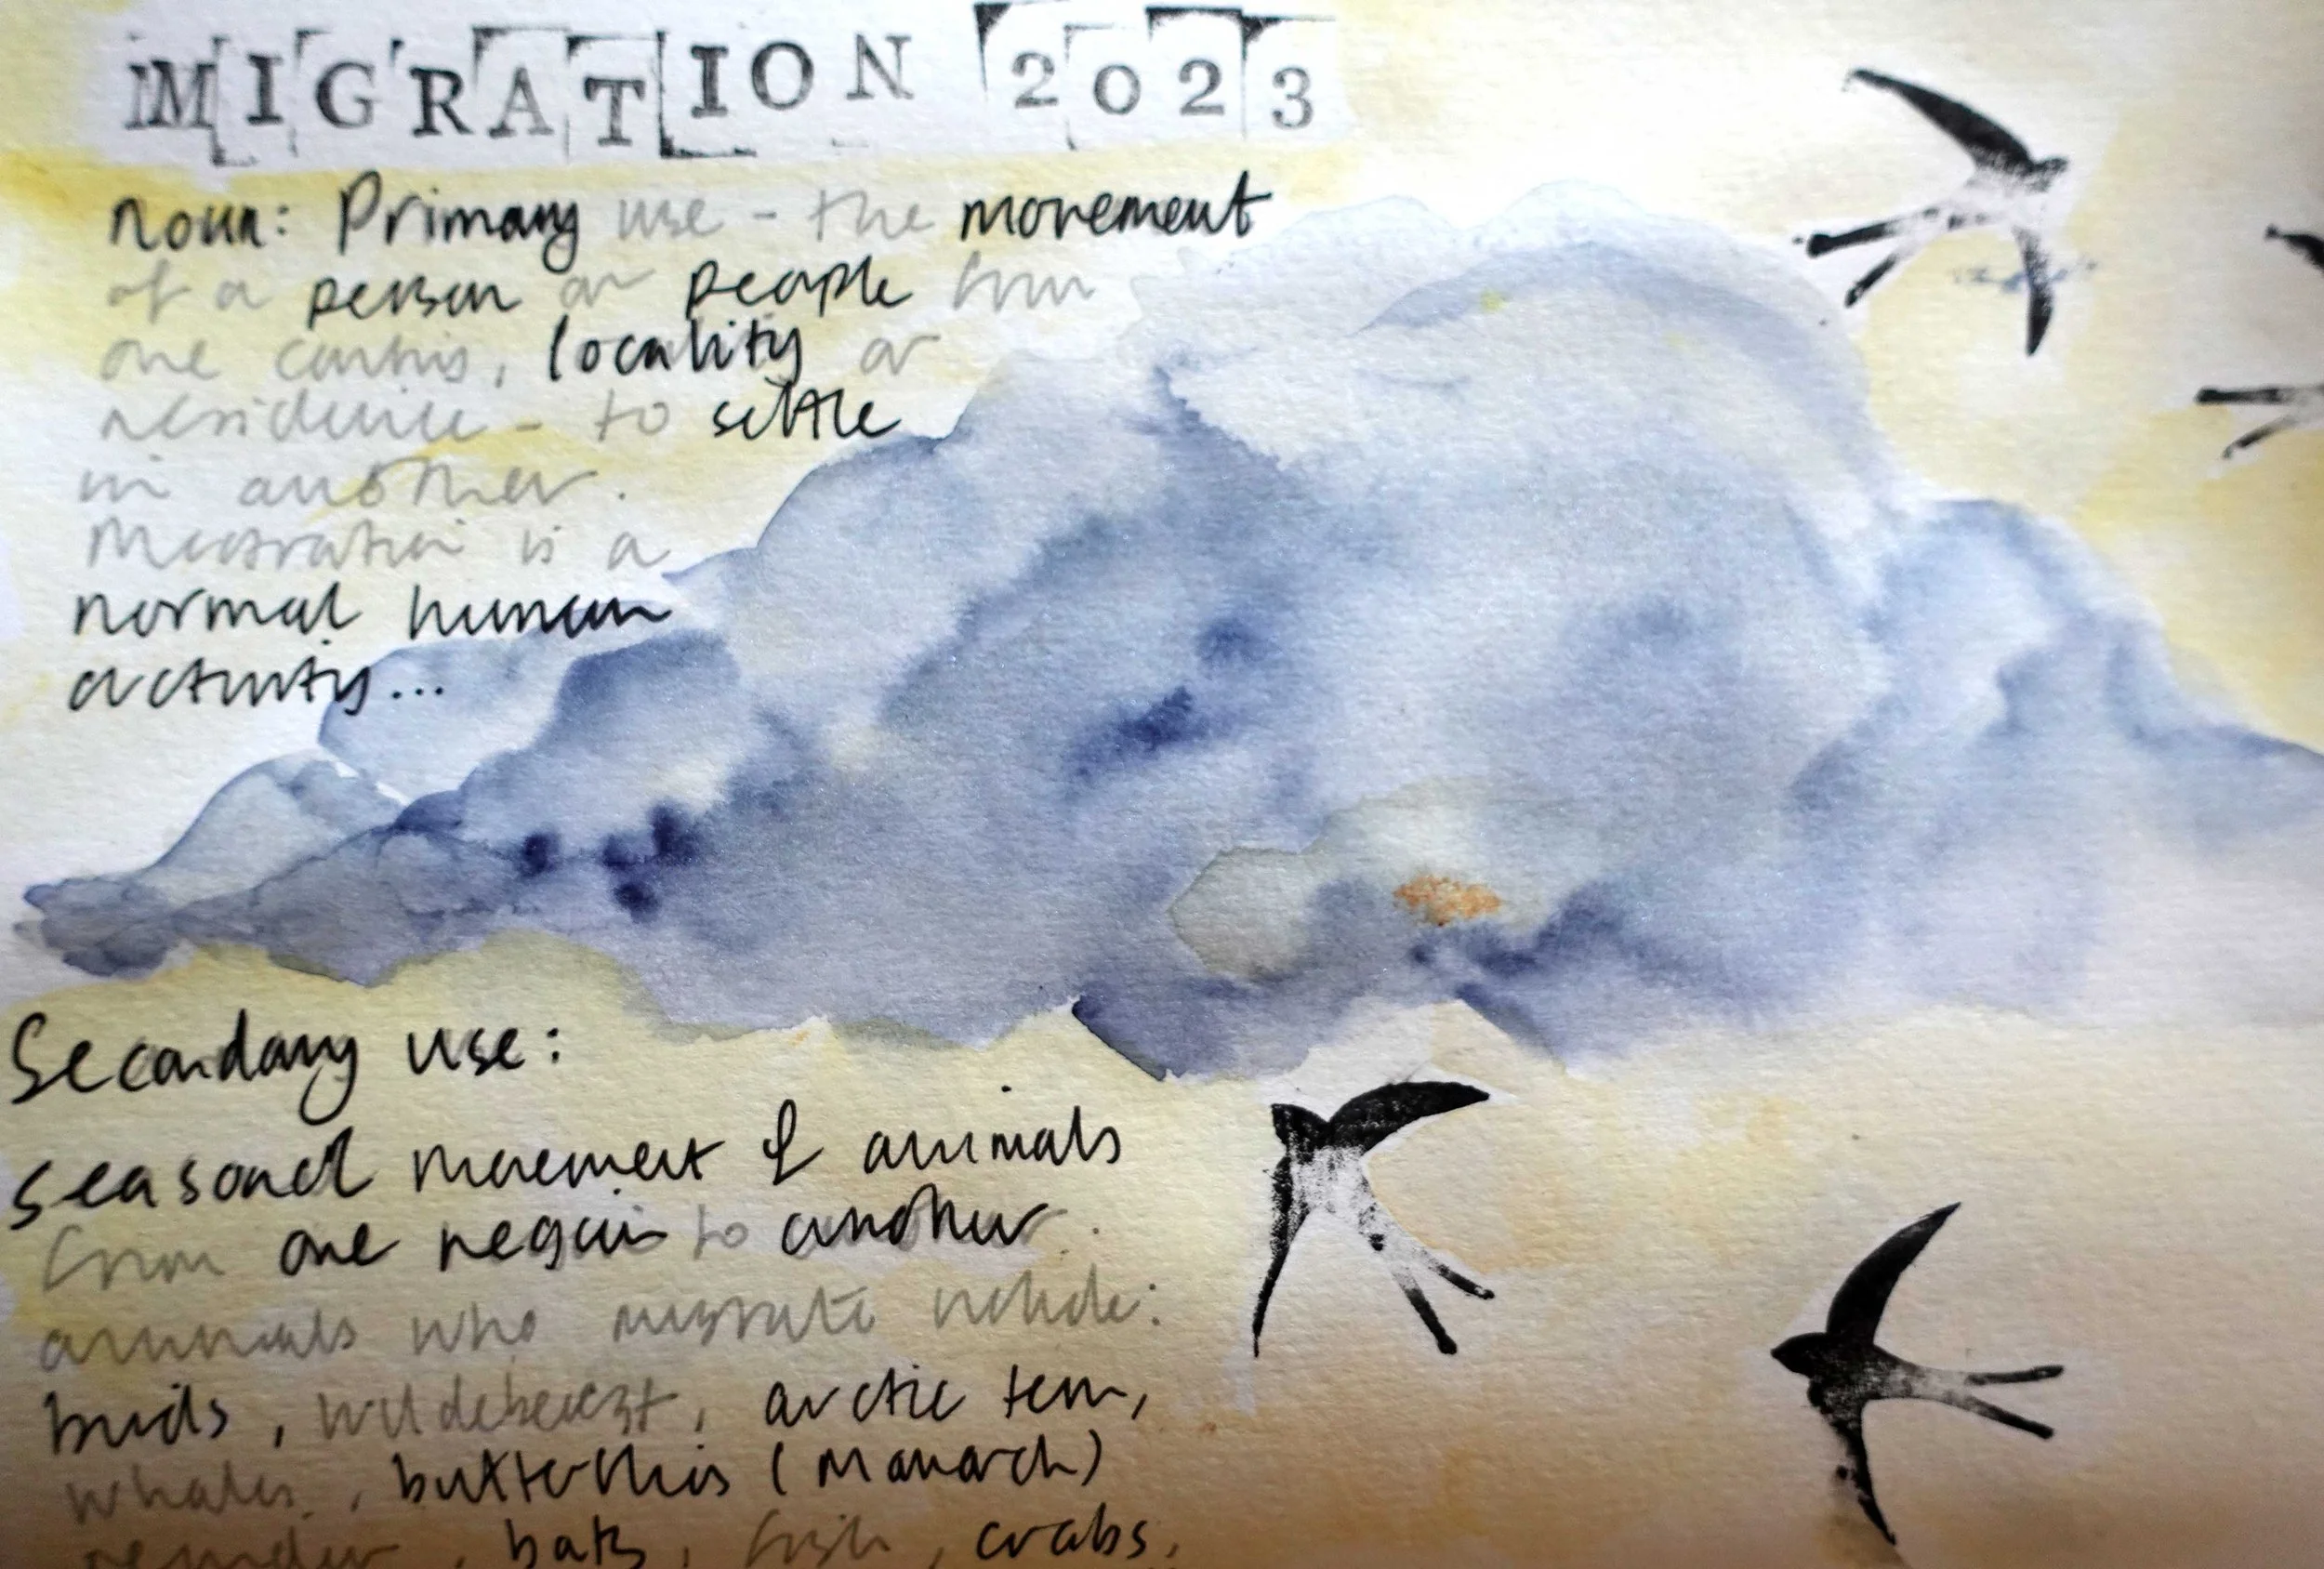 MIGRATION 2023
noun: Primary use - the movement
of a person or people from
one country, locality or
residence - to settle
in another.
Migration is a
normal human
activity...
Secondary use:
seasonal movement of animals
from one region to another.
animals who migrate include:
birds, wildebeest, arctic tern,
whales, butterflies (Monarch)
reindeer, bats, fish, crabs,